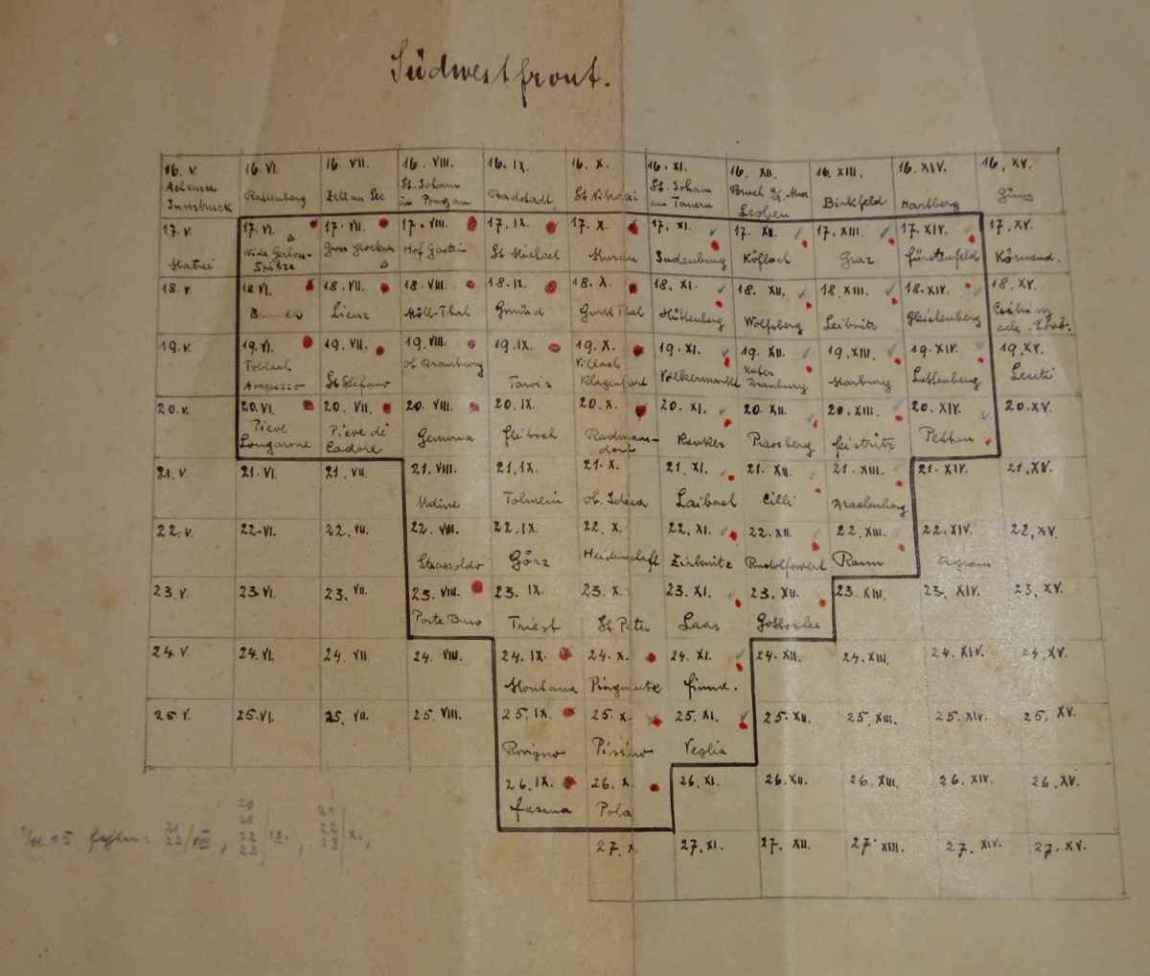 Südwestfront.
16. V. 16. VI. 16. VII. 16. VIII. 16. IX. 16. X. 16. XI. 16. XII. 16. XIII. 16. XIV. 16. XV.
Achensee Rattenberg Zell am See St. Johann Radstadt St. Nikolai St. Johann Bruch a/d. Mur Birkfeld Hartberg Güns
Innsbruck in Pongau am Tauern Leoben
17. V. 17. VI. 17. VII. 17. VIII. 17. IX. 17. X. 17. XI. 17. XII. 17. XIII. 17. XIV. 17. XV.
Matrei Gross Glockner Hof Gastein St Michael Murau Judenburg Köflach Graz Fürstenfeld Körmend.
Spitze
18. V. 18. VI. 18. VII. 18. VIII. 18. IX. 18. X. 18. XI. 18. XII. 18. XIII. 18. XIV. 18. XV.
Lienz Möll-Thal Gmünd Gurk Thal Hüttenberg Wolfsberg Leibnitz Gleichenberg
19. V. 19. VI. 19. VII. 19. VIII. 19. IX. 19. X. 19. XI. 19. XII. 19. XIII. 19. XIV. 19. XV.
Toblach St Stefano Ob. Drauburg Tarvis Villach Völkermarkt Unter Marburg Luttenberg
Klagenfurt Drauburg
20. V. 20. VI. 20. VII. 20. VIII. 20. IX. 20. X. 20. XI. 20. XII. 20. XIII. 20. XIV. 20. XV.
Pieve Pieve di Gemona Flitsch Radmans- Prassberg Feistritz Pettau
Longarone Cadore dorf
21. V. 21. VI. 21. VII. 21. VIII. 21. IX. 21. X. 21. XI. 21. XII. 21. XIII. 21. XIV. 21. XV.
Udine Tolmein Ob. Idria Laibach Cilli Drachenburg
22. V. 22. VI. 22. VII. 22. VIII. 22. IX. 22. X. 22. XI. 22. XII. 22. XIII. 22. XIV. 22. XV.
Strassoldo Görz Heidenschaft Zirknitz Rudolfswert Rann Agram
23. V. 23. VI. 23. VII. 23. VIII. 23. IX. 23. X. 23. XI. 23. XII. 23. XIII. 23. XIV. 23. XV.
Porto Buso Triest St Peter Laas Gottschee
24. V. 24. VI. 24. VII. 24. VIII. 24. IX. 24. X. 24. XI. 24. XII. 24. XIII. 24. XIV. 24. XV.
Montana Pinguente Fiume.
25. V. 25. VI. 25. VII. 25. VIII. 25. IX. 25. X. 25. XI. 25. XII. 25. XIII. 25. XIV. 25. XV.
Rovigno Pisino Veglia
26. IX. 26. X. 26. XI. 26. XII. 26. XIII. 26. XIV. 26. XV.
Fasana Pola
27. X. 27. XI. 27. XII. 27. XIII. 27. XIV. 27. XV.
fehlen: